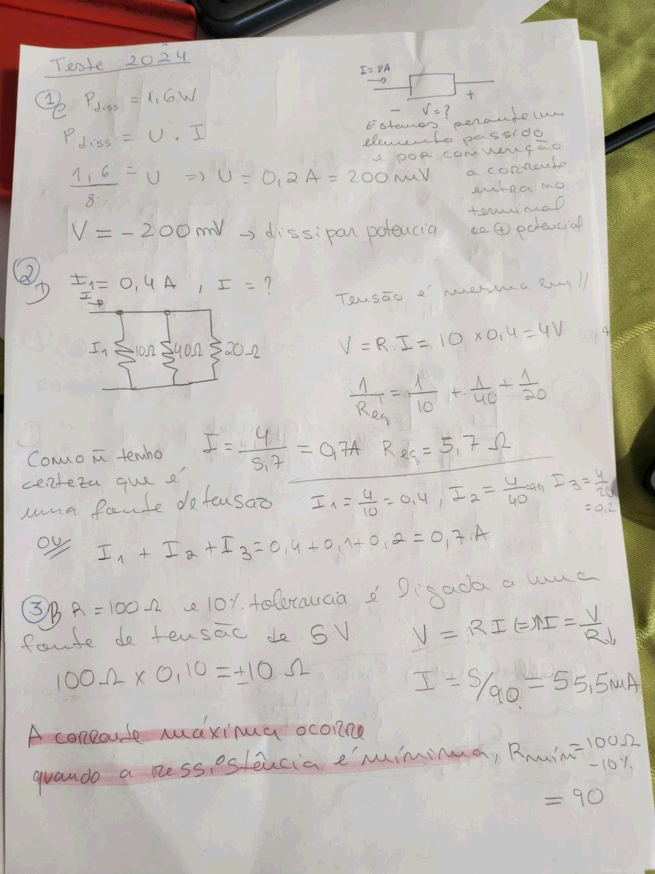 Teste 2024
① C Pdiss = 1,6W
Pdiss = U . I
1,6/8 = U => U = 0,2A = 200mV
V = -200mV → dissipar potência
I=8A
- V=? +
Estamos perante um
elemento passido
e por convenção
a corrente
entra no
terminal
de ⊕ potencial
② D I1 = 0,4A , I = ?
I
I1 10Ω 40Ω 20Ω
Tensão é mesma em //
V = R.I = 10 x0,4 = 4V
1/Req = 1/10 + 1/40 + 1/20
I = 4/5,7 = 0,7A Req = 5,7 Ω
Como ñ tenho
certeza que é
uma fonte de tensão
I1 = 4/10 = 0,4 , I2 = 4/40 = I3 = 4/20 = 0,2
ou I1 + I2 + I3 = 0,4+0,1+0,2 = 0,7 A
③ B R = 100Ω e 10% tolerancia é ligada a uma
fonte de tensão de 5V
100Ω x 0,10 = ±10 Ω
V = RI (=) ↑I = V/R↓
I = 5/90 = 55,5mA
A corrente máxima ocorre
quando a ressistência é mínima, Rmín = 100Ω
-10%
= 90